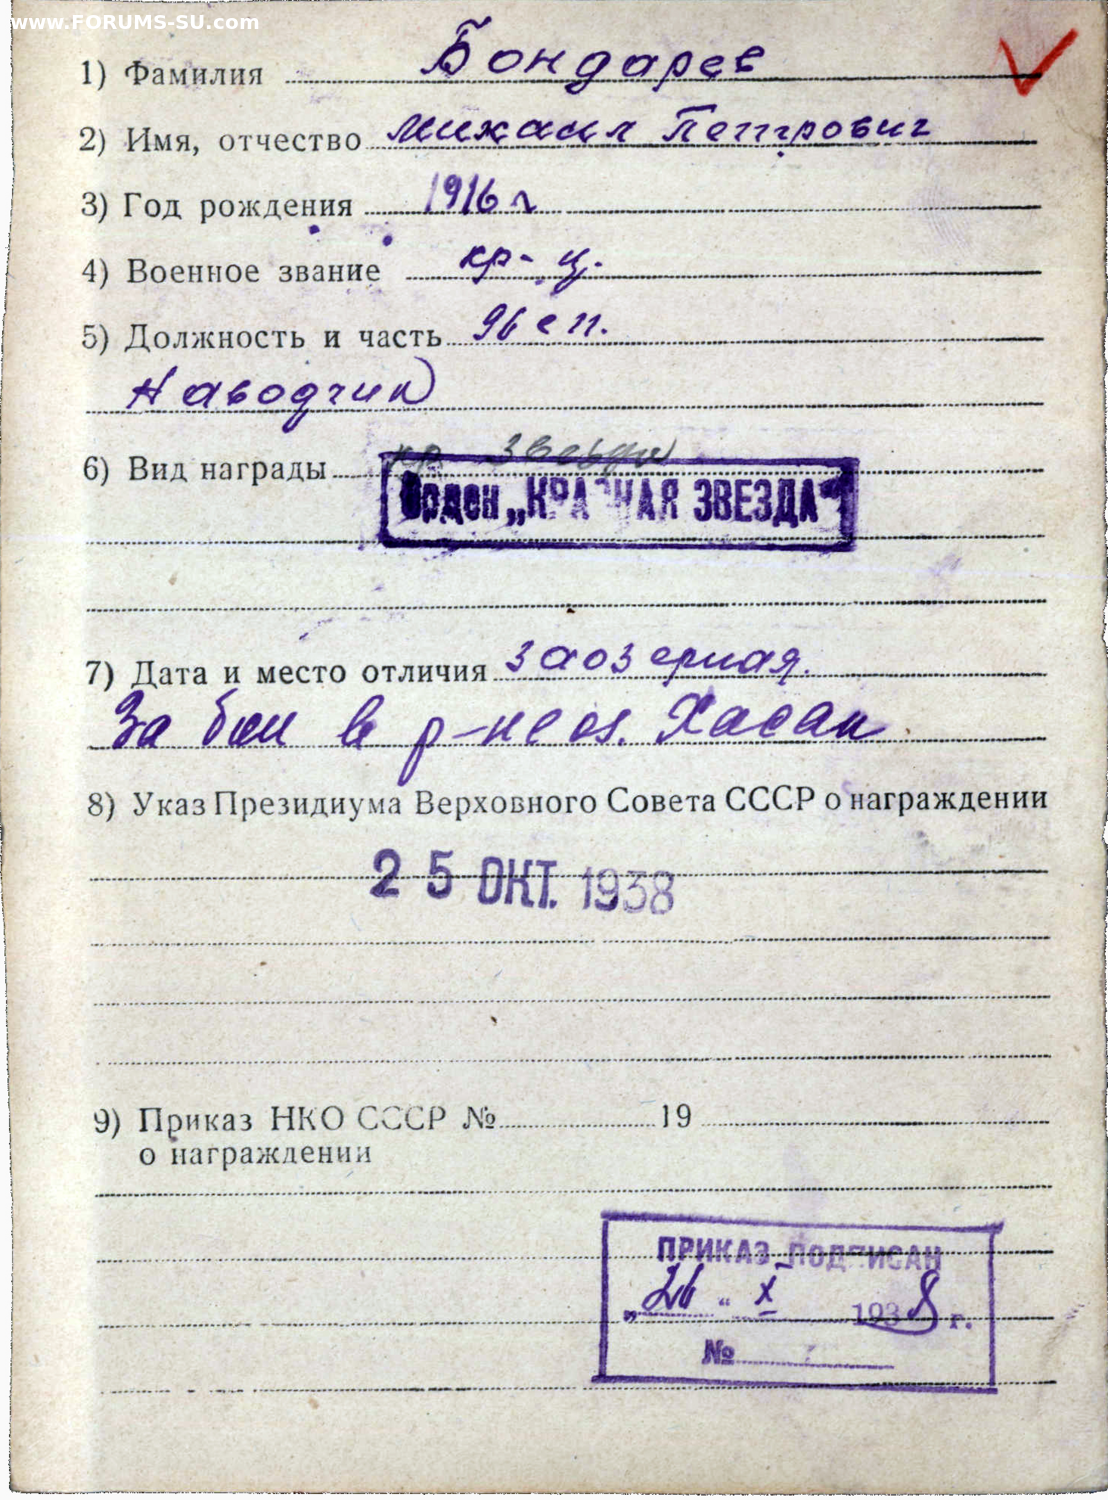 www.FORUMS-SU.com
1) Фамилия Бондарев
2) Имя, отчество Михаил Петрович
3) Год рождения 1916 г
4) Военное звание кр-ц.
5) Должность и часть 96 сп.
Наводчик
6) Вид награды кр. Звезды
Орден „КРАСНАЯ ЗВЕЗДА"
7) Дата и место отличия Заозерная.
За бои в р-не оз. Хасан
8) Указ Президиума Верховного Совета СССР о награждении
25 ОКТ. 1938
9) Приказ НКО СССР № 19
о награждении
ПРИКАЗ ПОДПИСАН
„26" X 1938 г.
№